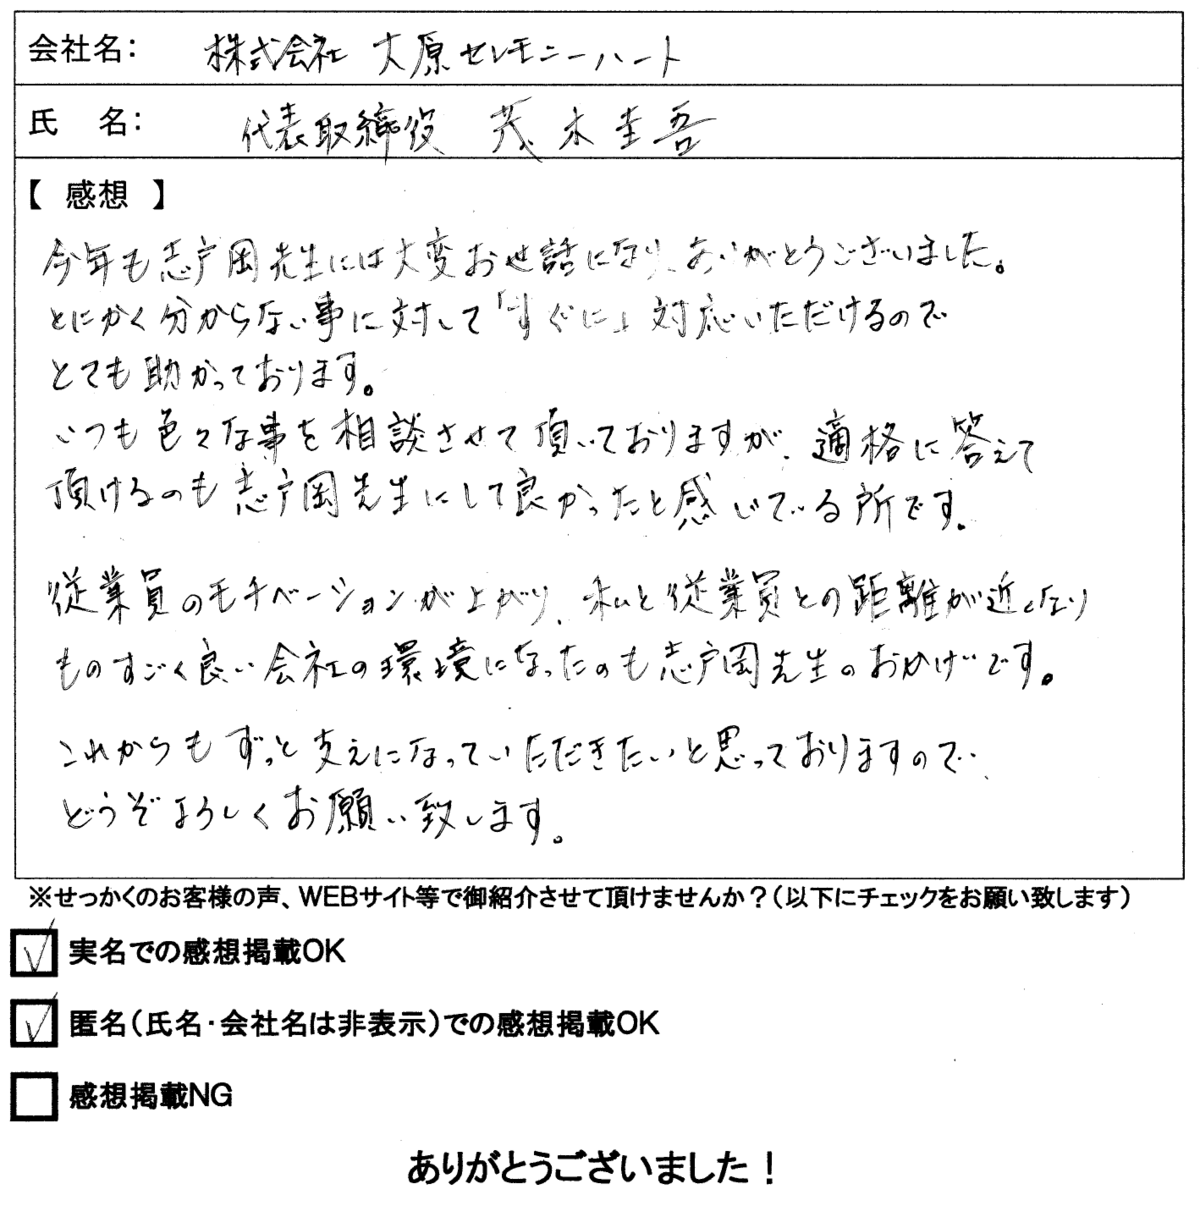 会社名: 株式会社 大原セレモニーハート
氏 名: 代表取締役 茂木圭吾
【 感想 】
今年も志戸岡先生には大変お世話になり、ありがとうございました。
とにかく分からない事に対して「すぐに」対応いただけるので
とても助かっております。
いつも色々な事を相談させて頂いておりますが、適格に答えて
頂けるのも志戸岡先生にして良かったと感じている所です。
従業員のモチベーションが上がり、私と従業員との距離が近くなり
ものすごく良い会社の環境になったのも志戸岡先生のおかげです。
これからもずっと支えになっていただきたいと思っておりますので、
どうぞよろしくお願い致します。
※せっかくのお客様の声、WEBサイト等で御紹介させて頂けませんか?(以下にチェックをお願い致します)
実名での感想掲載OK
匿名(氏名・会社名は非表示)での感想掲載OK
感想掲載NG
ありがとうございました!